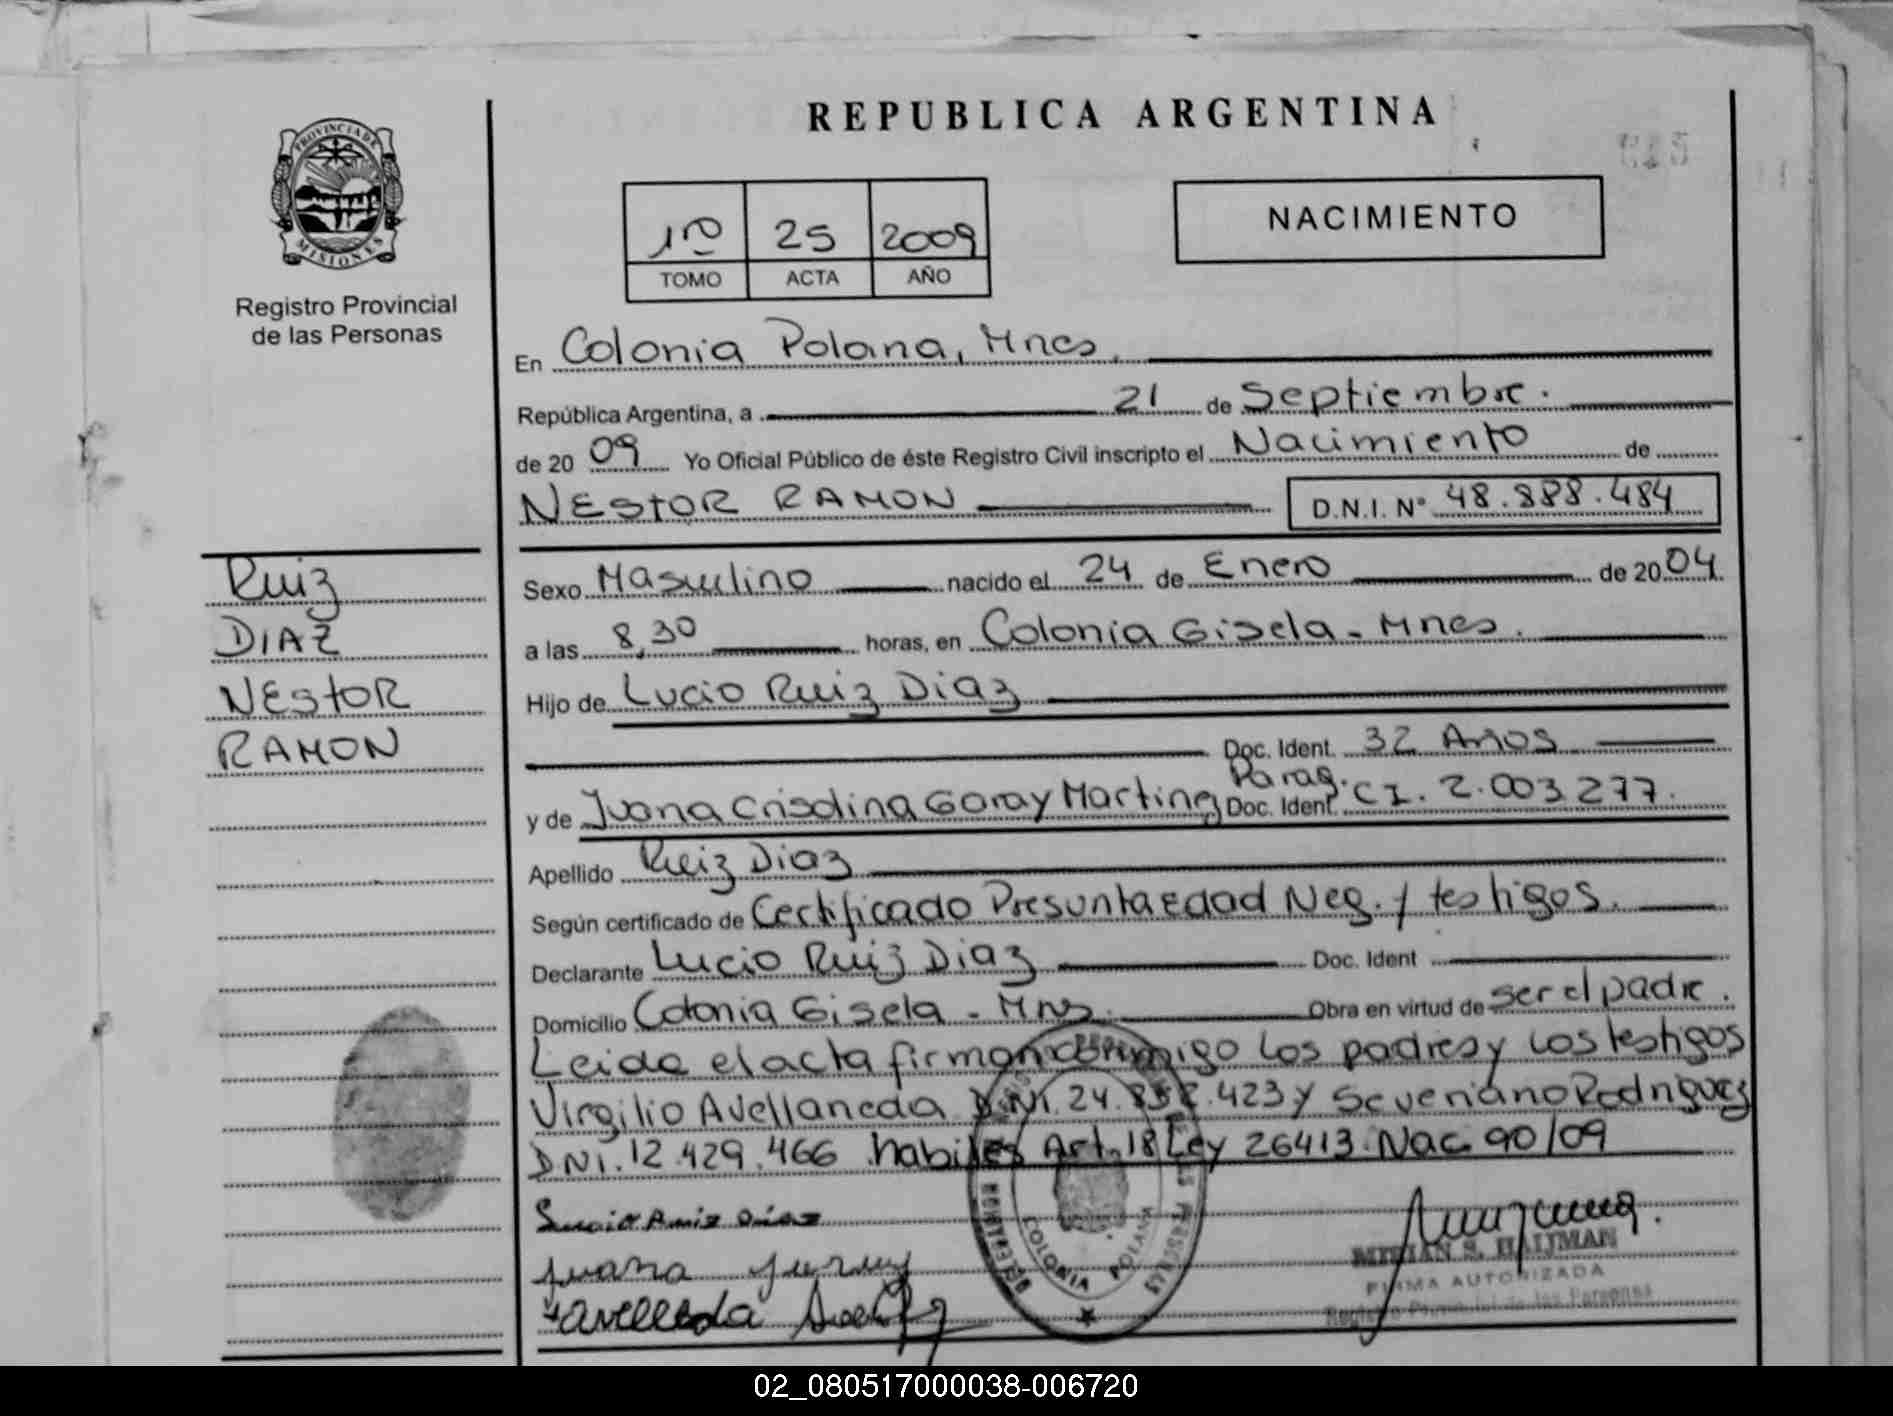 REPUBLICA ARGENTINA
PROVINCIA DE MISIONES
Registro Provincial
de las Personas
1ro 25 2009
TOMO ACTA AÑO
NACIMIENTO
En Colonia Polana, Mnes.
República Argentina, a 21 de Septiembre.
de 2009 Yo Oficial Público de éste Registro Civil inscripto el Nacimiento de
NEStOR RAMON D.N.I. Nº 48.888.484
Ruiz
DIAZ
NEStOR
RAMON
Sexo Masculino nacido el 24 de Enero de 2004
a las 8,30 horas, en Colonia Gisela - Mnes.
Hijo de Lucio Ruiz Diaz
Doc. Ident. 32 Años
y de Juana Crisolina Garay Martinez Doc. Ident. Parag. C I. 2.003 277.
Apellido Ruiz Diaz
Según certificado de Certificado Presunta Edad Neg. y testigos.
Declarante Lucio Ruiz Diaz Doc. Ident
Domicilio Colonia Gisela - Mns. Obra en virtud de ser el padre.
Leida el acta firman conmigo los padres y los testigos
Virgilio Avellaneda D.Ni. 24. .423 y Severiano Rodriguez
DNi. 12.429.466 habiles Art. 18 Ley 26413. Nac. 90/09
Lucio Ruiz Diaz
Juana
COLONIA POLANA
MIRIAN S. HAIJMAN
FIRMA AUTORIZADA
Registro Provincial de las Personas
02_080517000038-006720